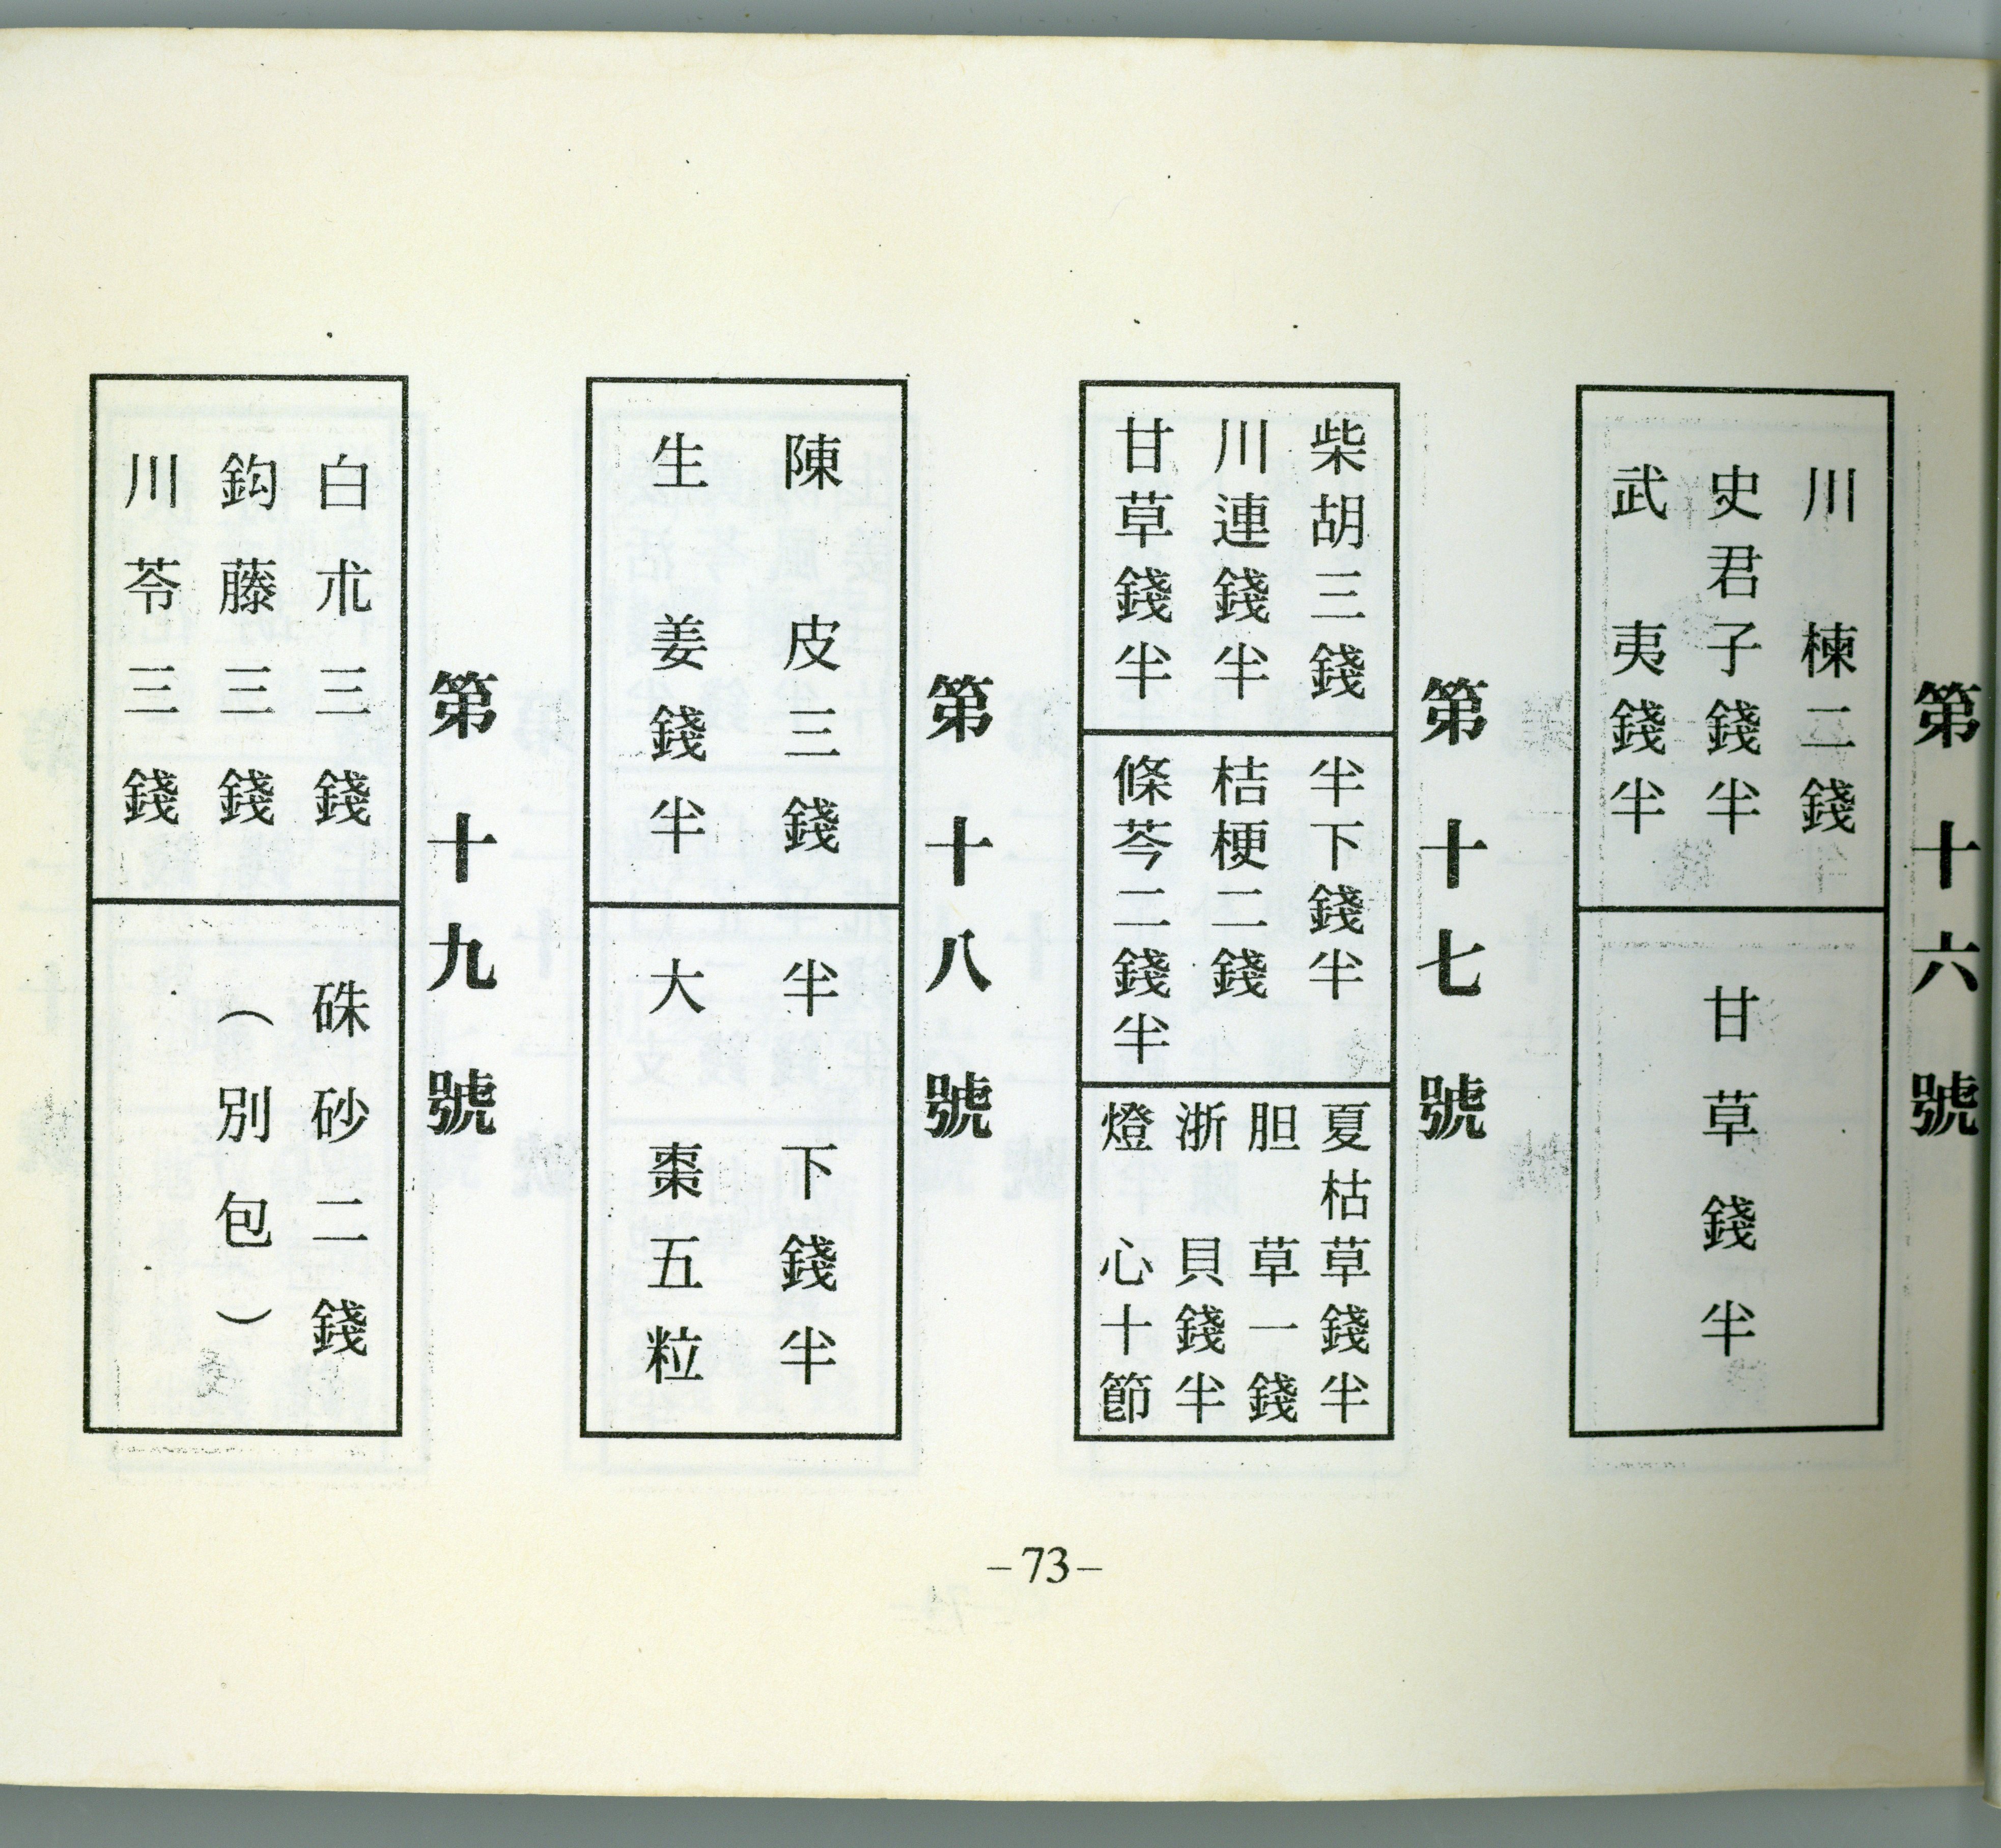 第十六號
川楝二錢
史君子錢半
武夷錢半
甘草錢半
第十七號
柴胡三錢
川連錢半
甘草錢半
半下錢半
桔梗二錢
條芩二錢半
夏枯草錢半
胆草一錢
浙貝錢半
燈心十節
第十八號
陳皮三錢
生姜錢半
半下錢半
大棗五粒
第十九號
白朮三錢
鈎藤三錢
川苓三錢
硃砂二錢
（別包）
–73–